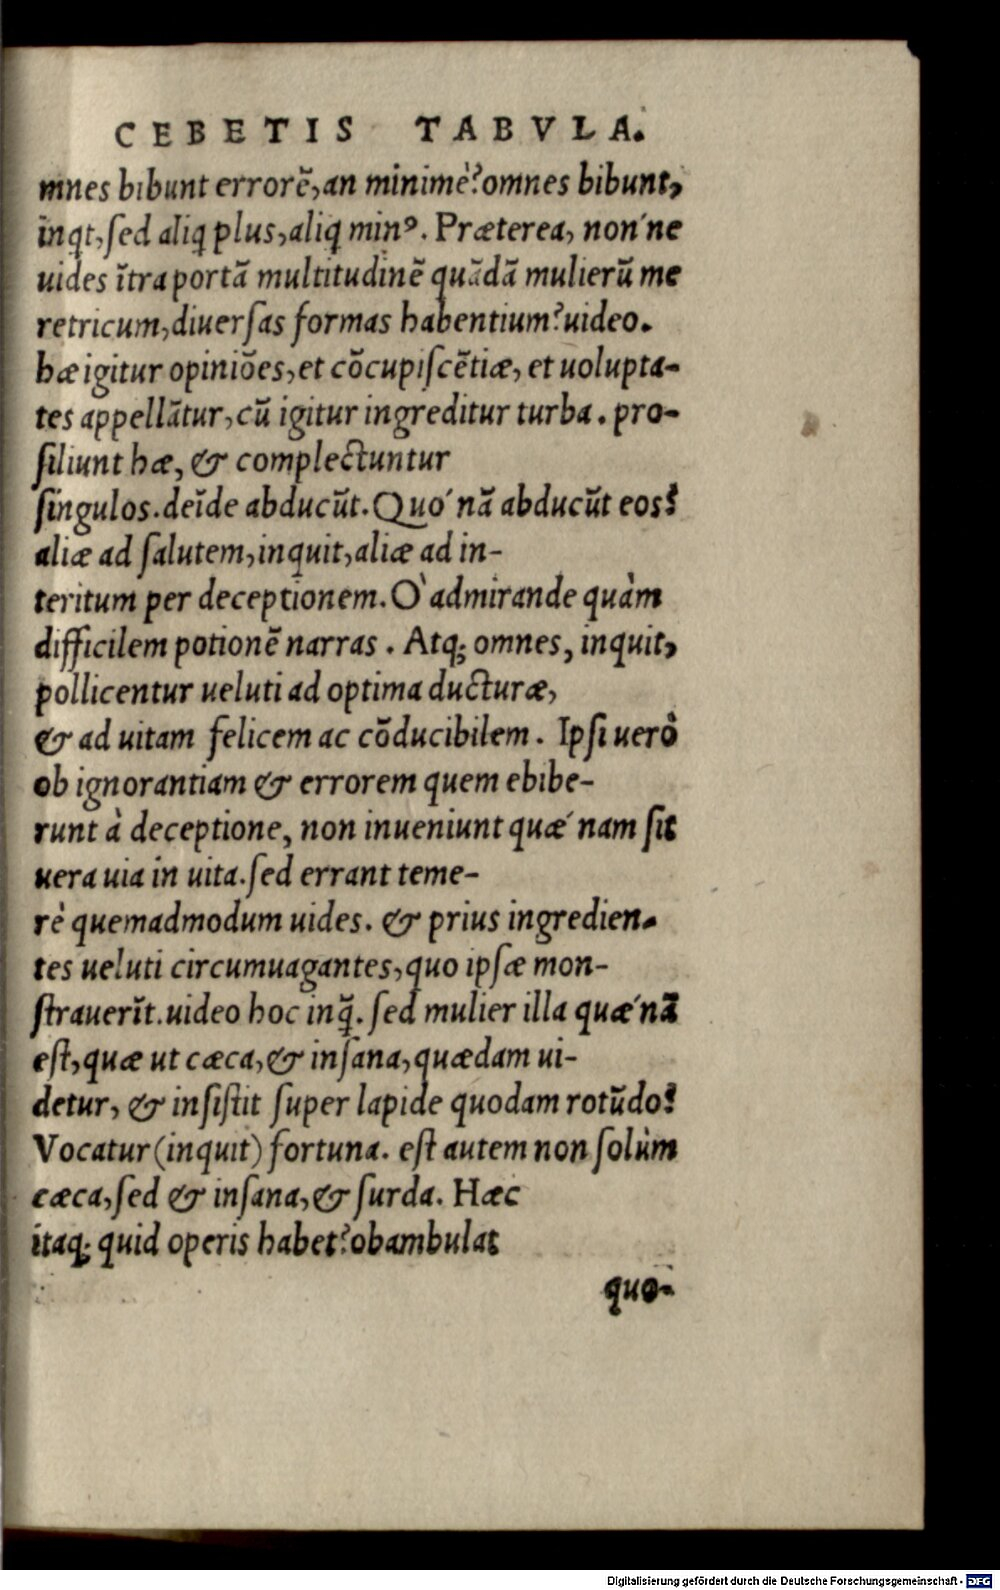 CEBETIS TABVLA.
mnes bibunt errorē, an minimè? omnes bibunt,
inq̃t, ſed aliq plus, aliq minꝰ. Præterea, non´ne
uides ītra portā multitudinē quādā mulierū me
retricum, diuerſas formas habentium? uideo.
hæ igitur opiniōes, et cōcupiſcētiæ, et uolupta-
tes appellātur, cū igitur ingreditur turba. pro-
ſiliunt hæ, & complectuntur
ſingulos. deīde abducūt. Quo´ nā abducūt eos?
aliæ ad ſalutem, inquit, aliæ ad in-
teritum per deceptionem. O` admirande quàm
difficilem potionē narras. Atq; omnes, inquit,
pollicentur ueluti ad optima ducturæ,
& ad uitam felicem ac cōducibilem. Ipſi uerò
ob ignorantiam & errorem quem ebibe-
runt à deceptione, non inueniunt quæ´nam ſit
uera uia in uita. ſed errant teme-
rè quemadmodum uides. & prius ingredien-
tes ueluti circumuagantes, quo ipſæ mon-
ſtrauerīt. uideo hoc inq̃. ſed mulier illa quæ´nā
eſt, quæ ut cæca, & inſana, quædam ui-
detur, & inſiſtit ſuper lapide quodam rotūdo?
Vocatur (inquit) fortuna. eſt autem non ſolùm
cæca, ſed & inſana, & ſurda. Hæc
itaq; quid operis habet? obambulat
quo-
Digitalisierung gefördert durch die Deutsche Forschungsgemeinschaft - DFG